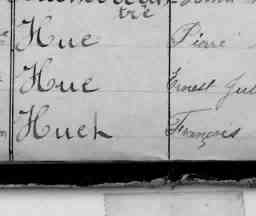 tre
Hue Pierre
Hue Ernest Jul
Huet François